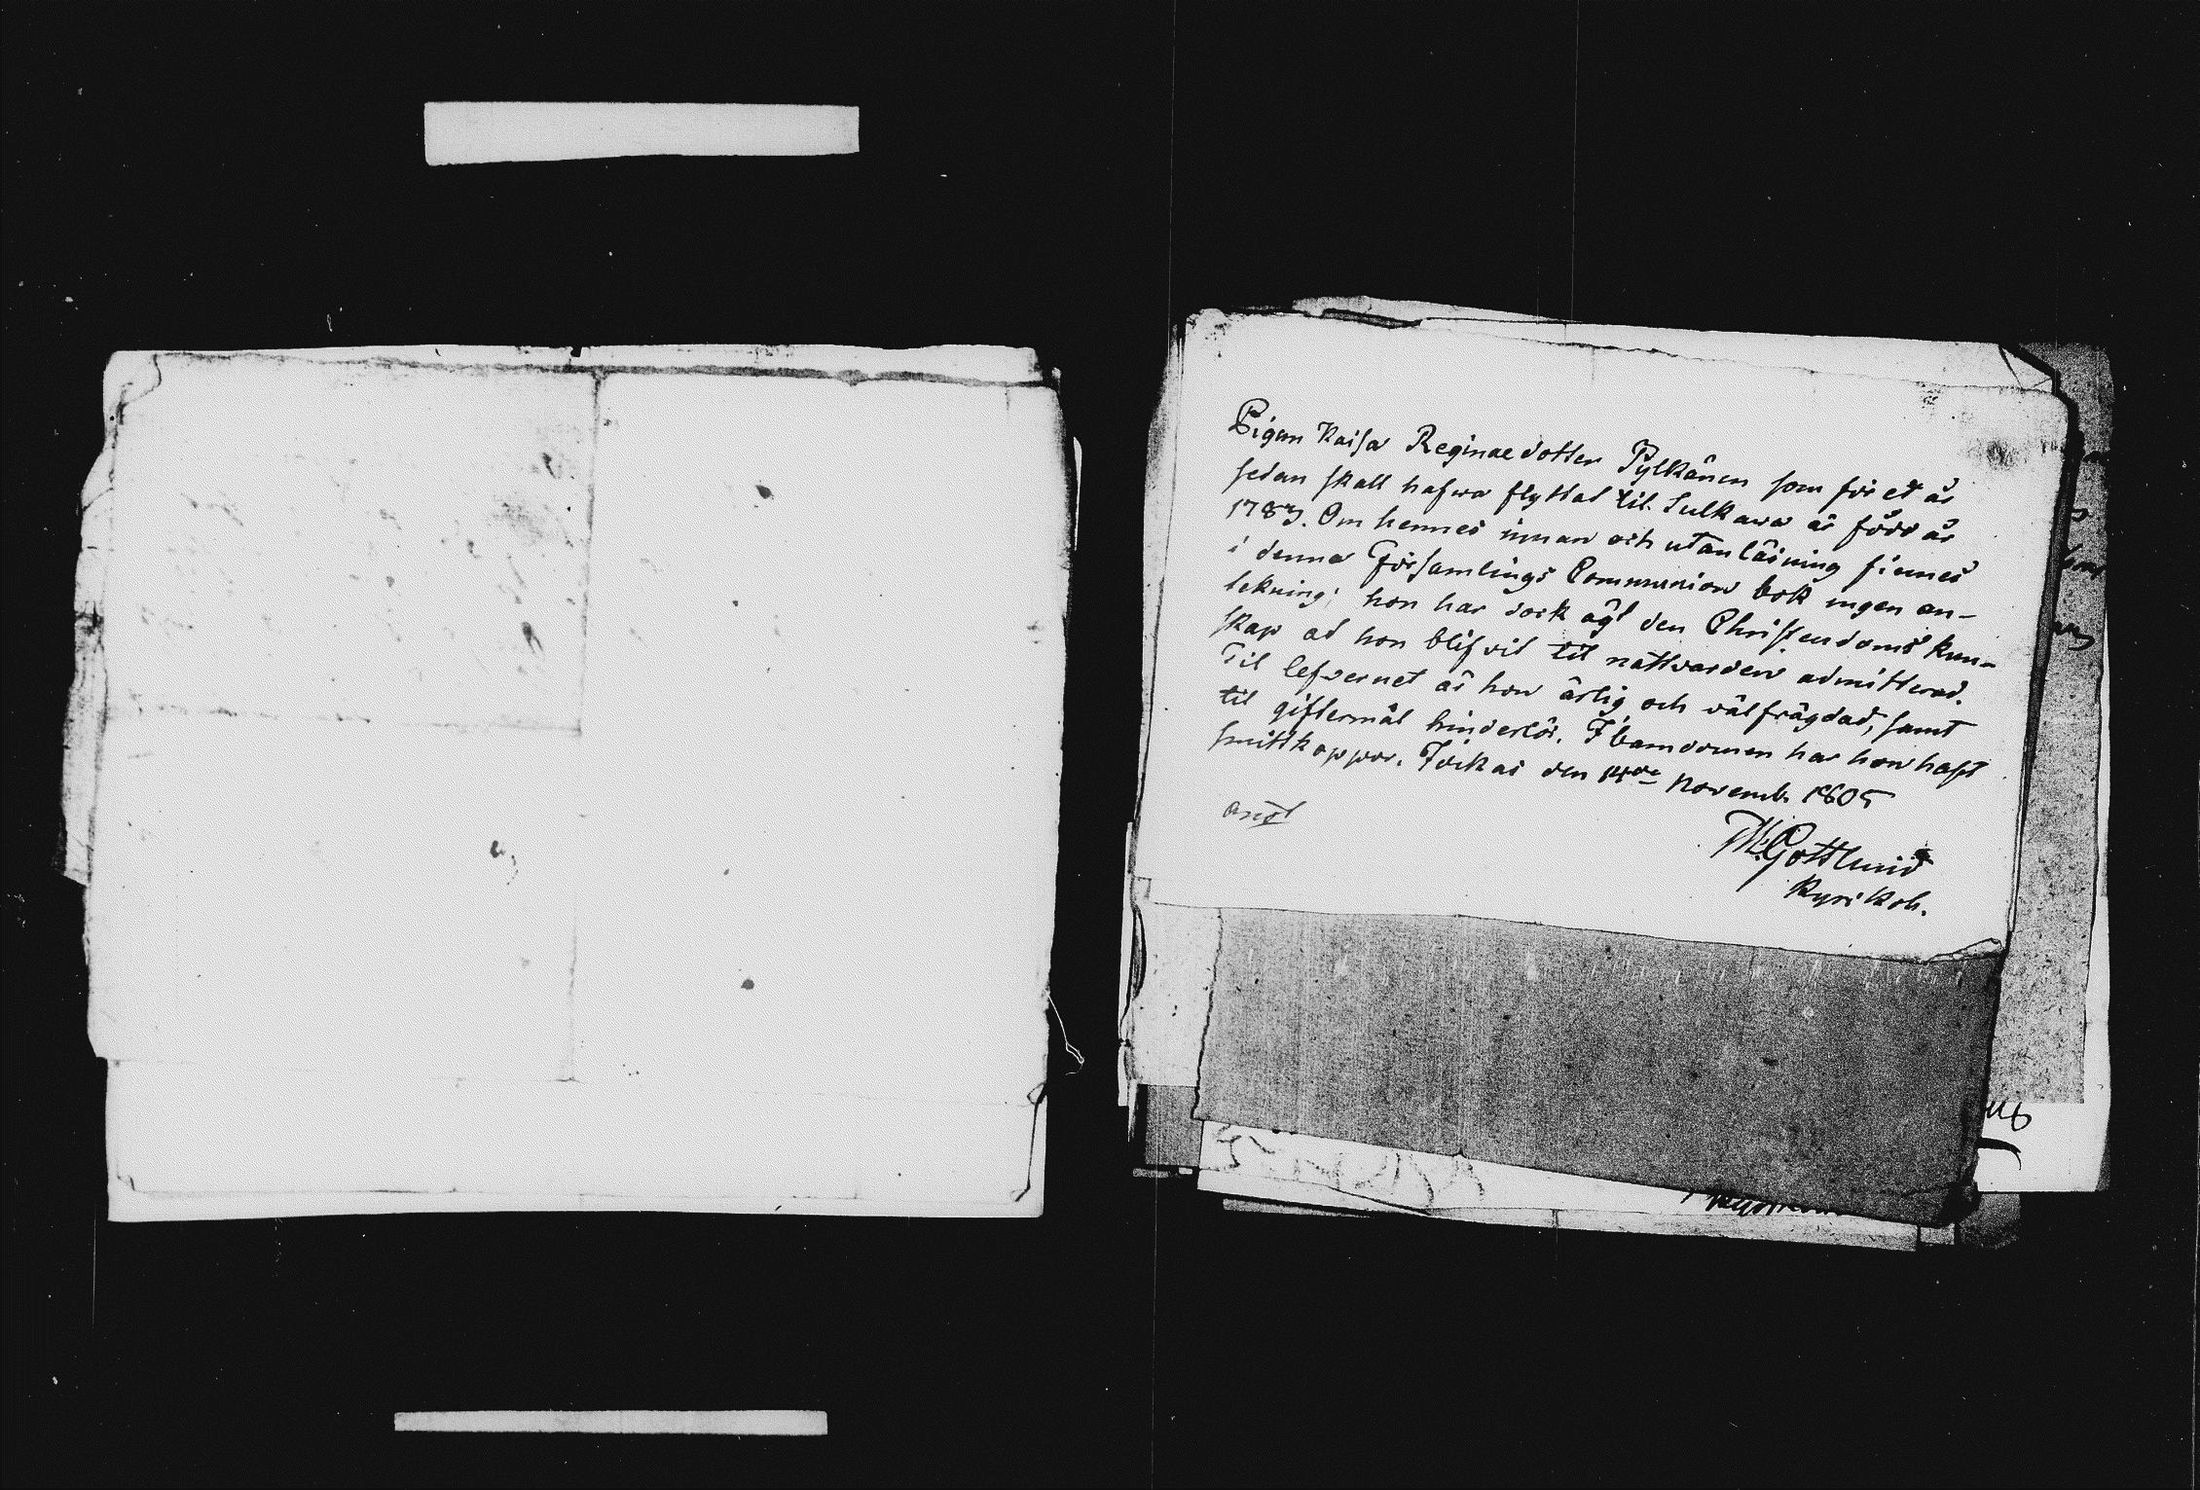 Pigan Kaisa Reginae dotter Pylkänen som för et år
sedan skall hafwa flyttat til Sulkawa är född år
1783. Om hennes innan och utanläsning finnes
i denna Församlings Communion bok ingen an-
tekning; hon har dock ägt den Christendoms kun-
skap at hon blifvit til nattvarden admitterad.
Til lefvernet är hon ärlig och välfrägdad, samt
til giftermål hinderlös. I barndomen har hon haft
smittkoppor. Jockas den 14de Novemb. 1805
M: Gottlund
Kyrikoh.